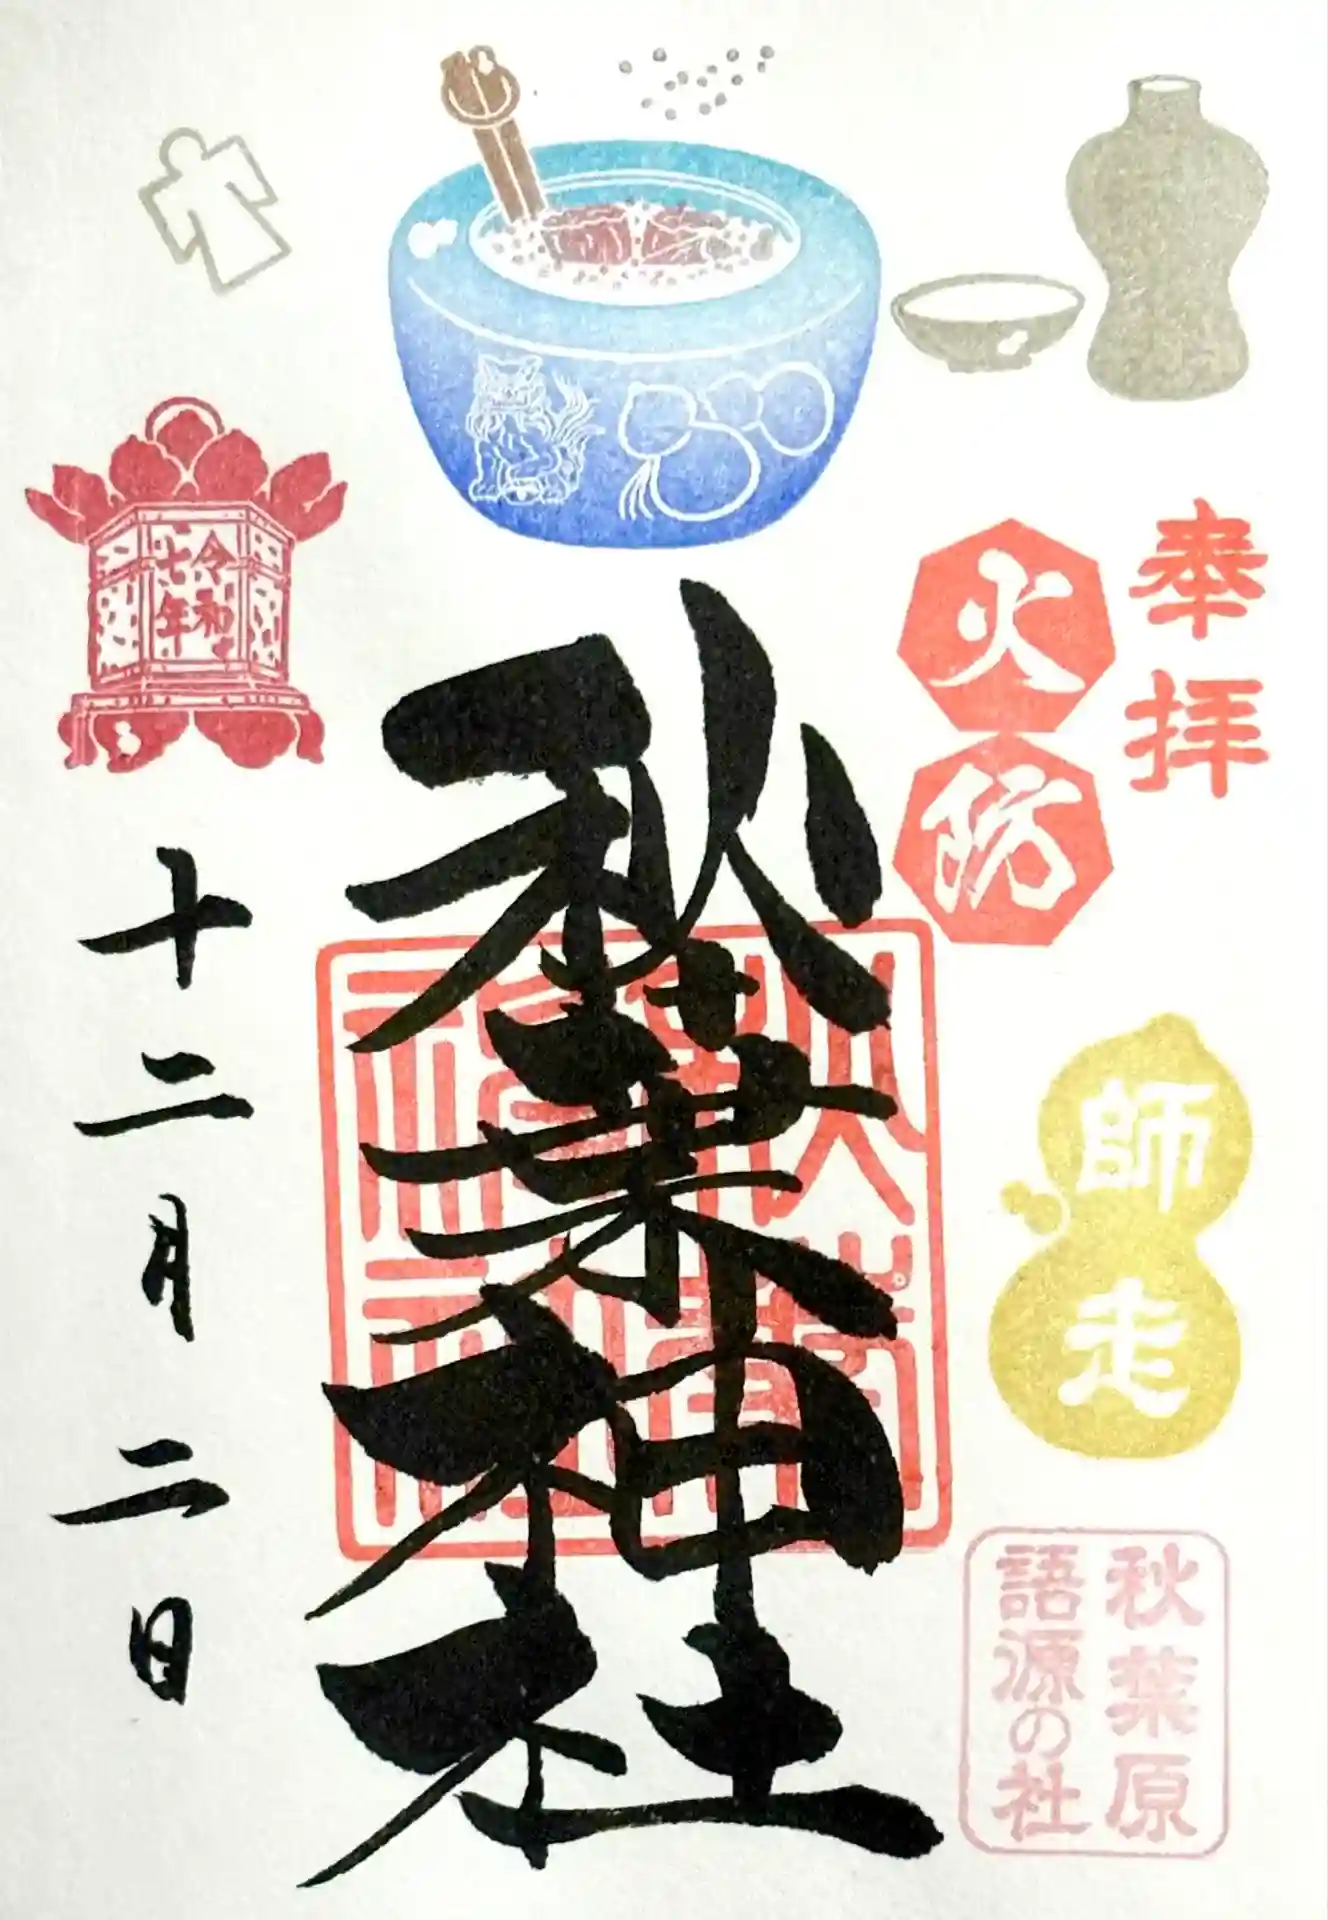 奉拝
火防
師走
秋葉原
語源の社
秋葉神社
令和
七年
十二月二日